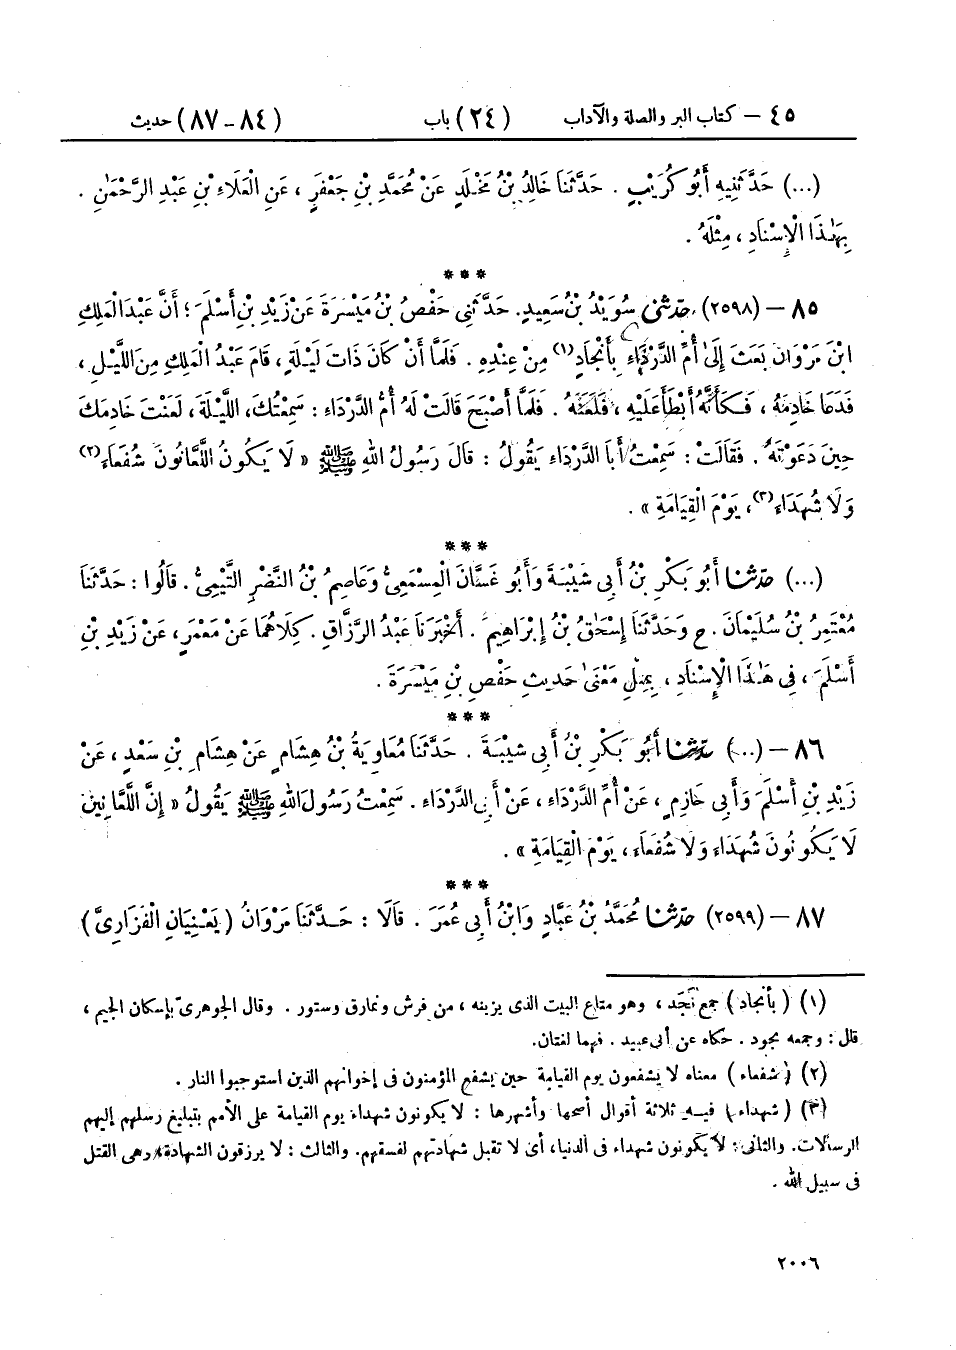 ٤٥ – كتاب البر والصلة والآداب (٢٤) باب (٨٤ – ٨٧) حديث
(...) حَدَّثَنِيهِ أَبُو كُرَيْبٍ . حَدَّثَنَا خَالِدُ بْنُ مَخْلَدٍ عَنْ مُحَمَّدِ بْنِ جَعْفَرٍ ، عَنِ الْعَلَاءِ بْنِ عَبْدِ الرَّحْمٰنِ .
بِهٰذَا الْإِسْنَادِ ، مِثْلَهُ .
***
٨٥ – (٢٥٩٨) حَدَّثَنِى سُوَيْدُ بْنُ سَعِيدٍ. حَدَّثَنِى حَفْصُ بْنُ مَيْسَرَةَ عَنْ زَيْدِ بْنِ أَسْلَمَ ؛ أَنَّ عَبْدَ الْمَلِكِ
ابْنَ مَرْوَانَ بَعَثَ إِلَىٰ أُمِّ الدَّرْدَاءِ بِأَنْجَادٍ(١) مِنْ عِنْدِهِ . فَلَمَّا أَنْ كَانَ ذَاتَ لَيْلَةٍ ، قَامَ عَبْدُ الْمَلِكِ مِنَ اللَّيْلِ ،
فَدَعَا خَادِمَهُ ، فَكَأَنَّهُ أَبْطَأَ عَلَيْهِ ، فَلَعَنَهُ . فَلَمَّا أَصْبَحَ قَالَتْ لَهُ أُمُّ الدَّرْدَاءِ : سَمِعْتُكَ، اللَّيْلَةَ ، لَعَنْتَ خَادِمَكَ
حِينَ دَعَوْتَهُ . فَقَالَتْ : سَمِعْتُ أَبَا الدَّرْدَاءِ يَقُولُ : قَالَ رَسُولُ اللهِ ﷺ « لَا يَكُونُ اللَّعَّانُونَ شُفَعَاءَ(٢)
وَلَا شُهَدَاءَ(٣)، يَوْمَ الْقِيَامَةِ » .
***
(...) حَدَّثَنَا أَبُو بَكْرِ بْنُ أَبِى شَيْبَةَ وَأَبُو غَسَّانَ الْمِسْمَعِىُّ وَعَاصِمُ بْنُ النَّضْرِ التَّيْمِىُّ . قَالُوا : حَدَّثَنَا
مُعْتَمِرُ بْنُ سُلَيْمَانَ . ح وَحَدَّثَنَا إِسْحٰقُ بْنُ إِبْرَاهِيمَ . أَخْبَرَنَا عَبْدُ الرَّزَّاقِ . كِلَاهُمَا عَنْ مَعْمَرٍ ، عَنْ زَيْدِ بْنِ
أَسْلَمَ ، فِى هٰذَا الْإِسْنَادِ ، بِمِثْلِ مَعْنَىٰ حَدِيثِ حَفْصِ بْنِ مَيْسَرَةَ .
***
٨٦ – (...) حَدَّثَنَا أَبُو بَكْرِ بْنُ أَبِى شَيْبَةَ . حَدَّثَنَا مُعَاوِيَةُ بْنُ هِشَامٍ عَنْ هِشَامِ بْنِ سَعْدٍ ، عَنْ
زَيْدِ بْنِ أَسْلَمَ وَأَبِى حَازِمٍ ، عَنْ أُمِّ الدَّرْدَاءِ ، عَنْ أَبِى الدَّرْدَاءِ . سَمِعْتُ رَسُولَ اللهِ ﷺ يَقُولُ « إِنَّ اللَّعَّانِينَ
لَا يَكُونُونَ شُهَدَاءَ وَلَا شُفَعَاءَ ، يَوْمَ الْقِيَامَةِ » .
***
٨٧ – (٢٥٩٩) حَدَّثَنَا مُحَمَّدُ بْنُ عَبَّادٍ وَابْنُ أَبِى عُمَرَ . قَالَا : حَدَّثَنَا مَرْوَانُ (يَعْنِيَانِ الْفَزَارِىَّ)
(١) (بأنجاد) جمع نَجَد ، وهو متاع البيت الذى يزينه ، من فرش ونمارق وستور . وقال الجوهرىّ بإسكان الجيم ،
قال : وجمعه نجود . حكاه عن أبى عبيد . فهما لغتان.
(٢) (شفعاء) معناه لا يشفعون يوم القيامة حين يشفع المؤمنون فى إخوانهم الذين استوجبوا النار .
(٣) (شهداء) فيه ثلاثة أقوال أصحها وأشهرها : لا يكونون شهداء يوم القيامة على الأمم بتبليغ رسلهم إليهم
الرسالات. والثانى : لا يكونون شهداء فى الدنيا، أى لا تقبل شهادتهم لفسقهم. والثالث : لا يرزقون الشهادة، وهى القتل
فى سبيل الله .
٢٠٠٦